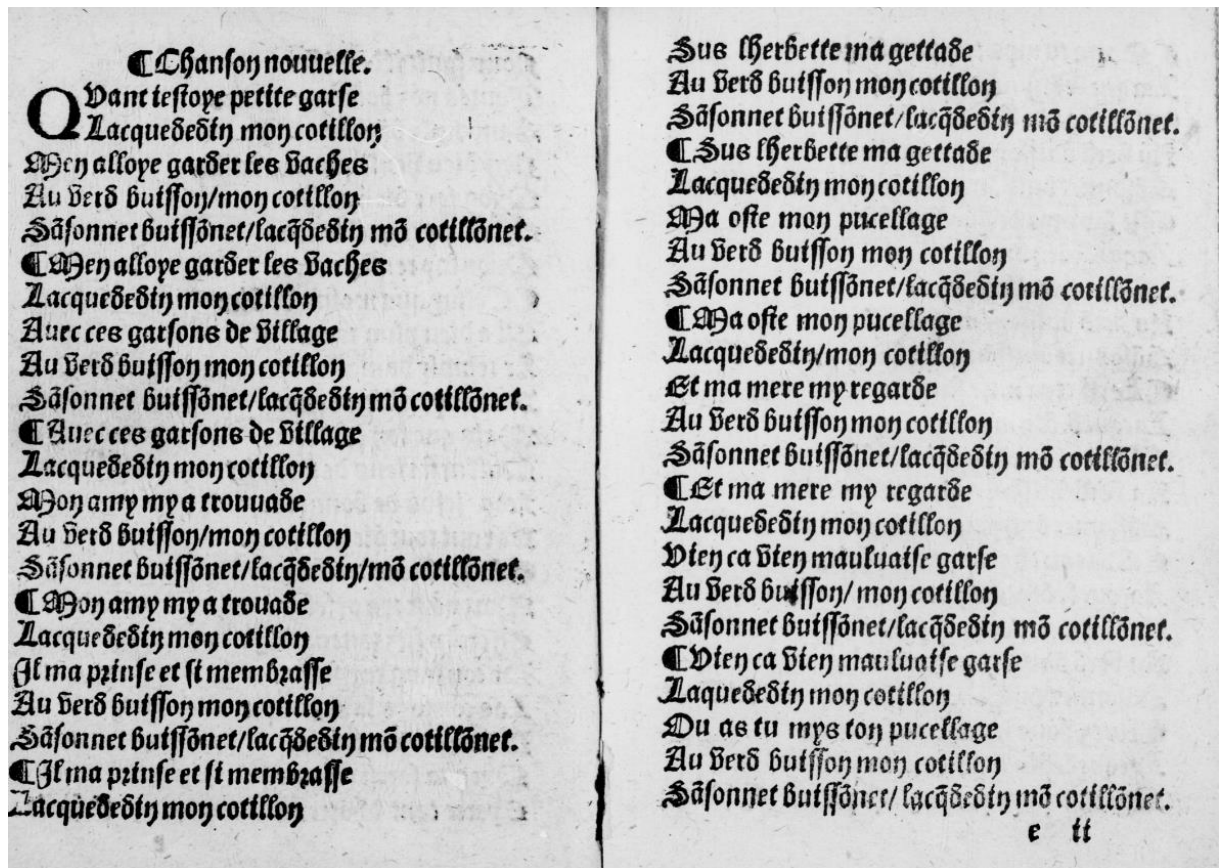 ¶ Chanson nouuelle.
QVant iestoye petite garse
Lacquededin mon cotillon
Men alloye garder les vaches
Au verd buisson/mon cotillon
Sãsonnet buissõnet/lacq̃dedin mõ cotillõnet.
¶ Men alloye garder les vaches
Lacquededin mon cotillon
Auec ces garsons de village
Au verd buisson mon cotillon
Sãsonnet buissõnet/lacq̃dedin mõ cotillõnet.
¶ Auec ces garsons de village
Lacquededin mon cotillon
Mon amy my a trouuade
Au verd buisson/mon cotillon
Sãsonnet buissõnet/lacq̃dedin/mõ cotillõnet.
¶ Mon amy my a trouade
Lacquededin mon cotillon
Il ma prinse et si membrasse
Au verd buisson mon cotillon
Sãsonnet buissõnet/lacq̃dedin mõ cotillõnet.
¶ Il ma prinse et si membrasse
Lacquededin mon cotillon
Sus lherbette ma gettade
Au verd buisson mon cotillon
Sãsonnet buissõnet/lacq̃dedin mõ cotillõnet.
¶ Sus lherbette ma gettade
Lacquededin mon cotillon
Ma oste mon pucellage
Au verd buisson mon cotillon
Sãsonnet buissõnet/lacq̃dedin mõ cotillõnet.
¶ Ma oste mon pucellage
Lacquededin/mon cotillon
Et ma mere my regarde
Au verd buisson mon cotillon
Sãsonnet buissõnet/lacq̃dedin mõ cotillõnet.
¶ Et ma mere my regarde
Lacquededin mon cotillon
Vien ca vien mauluaise garse
Au verd buisson/ mon cotillon
Sãsonnet buissõnet/lacq̃dedin mõ cotillõnet.
¶ Vien ca vien mauluaise garse
Laquededin mon cotillon
Ou as tu mys ton pucellage
Au verd buisson mon cotillon
Sãsonnet buissõnet/ lacq̃dedin mõ cotillõnet.
e ii